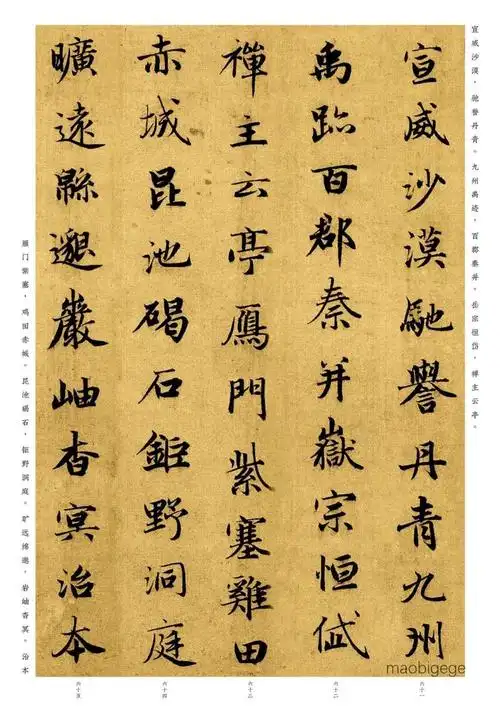 宣威沙漠，驰誉丹青。九州禹迹，百郡秦并。岳宗恒岱，禅主云亭。
宣威沙漠馳譽丹青九州
禹跡百郡秦并嶽宗恒岱
禪主云亭鴈門紫塞雞田
赤城昆池碣石鉅野洞庭
曠遠緜邈巖岫杳冥治本
雁门紫塞，鸡田赤城。昆池碣石，钜野洞庭。旷远绵邈，岩岫杳冥。治本
maobigege
六十一
六十二
六十三
六十四
六十五